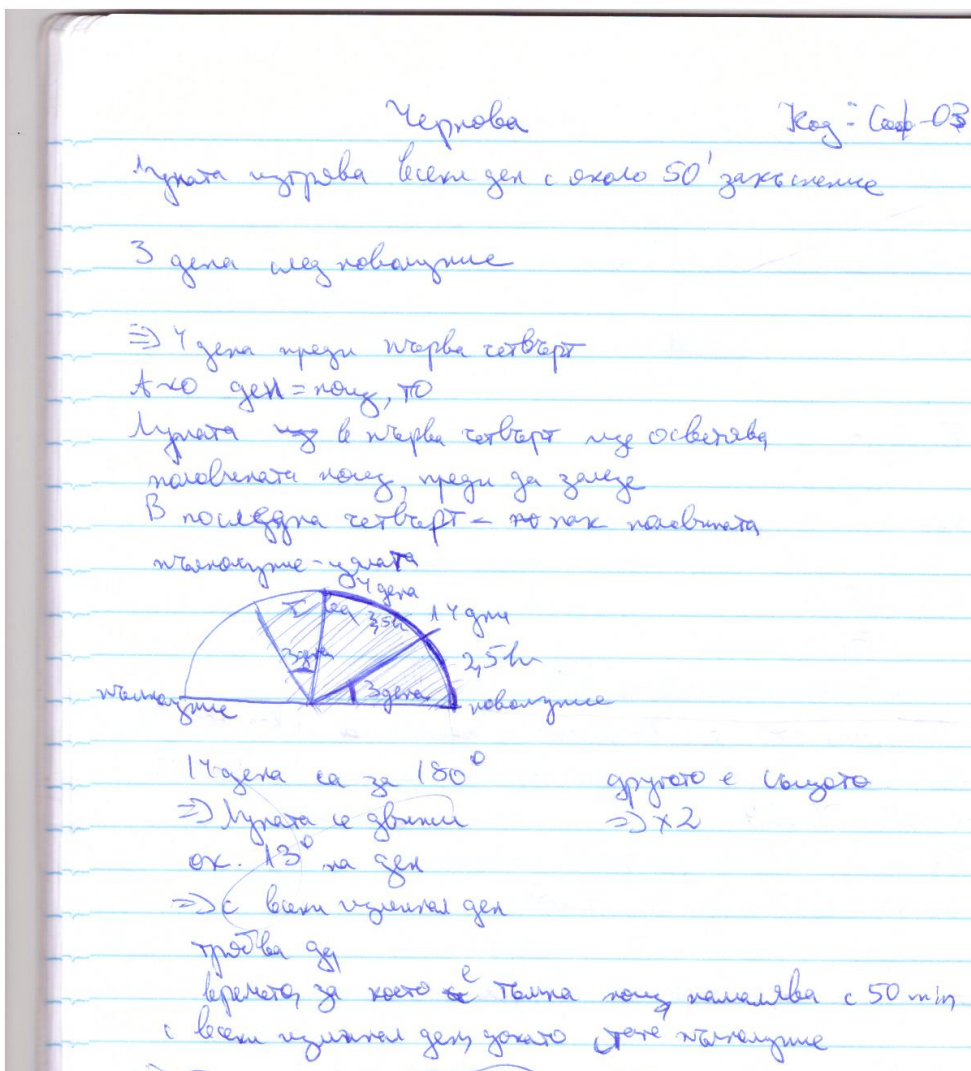 Чернова
Код: Соф-03
Луната изгрява всеки ден с около 50' закъснение
3 дена след новолуние
=> 4 дена преди първа четвърт
Ако ден = нощ, то
Луната в първа четвърт ще осветява
половината нощ, преди да залезе
В последна четвърт - пак половината
пълнолуние - цялата
4 дена
I
3,5h
14 дни
3 дена
2,5h
3 дена
пълнолуние
новолуние
14 дена са за 180°
другото е същото
=> Луната се движи
=> x2
ок. 13° на ден
=> с всеки изминал ден
трябва да
времето, за което е тъмна нощ, намалява с 50 min
с всеки изминал ден, докато стане пълнолуние